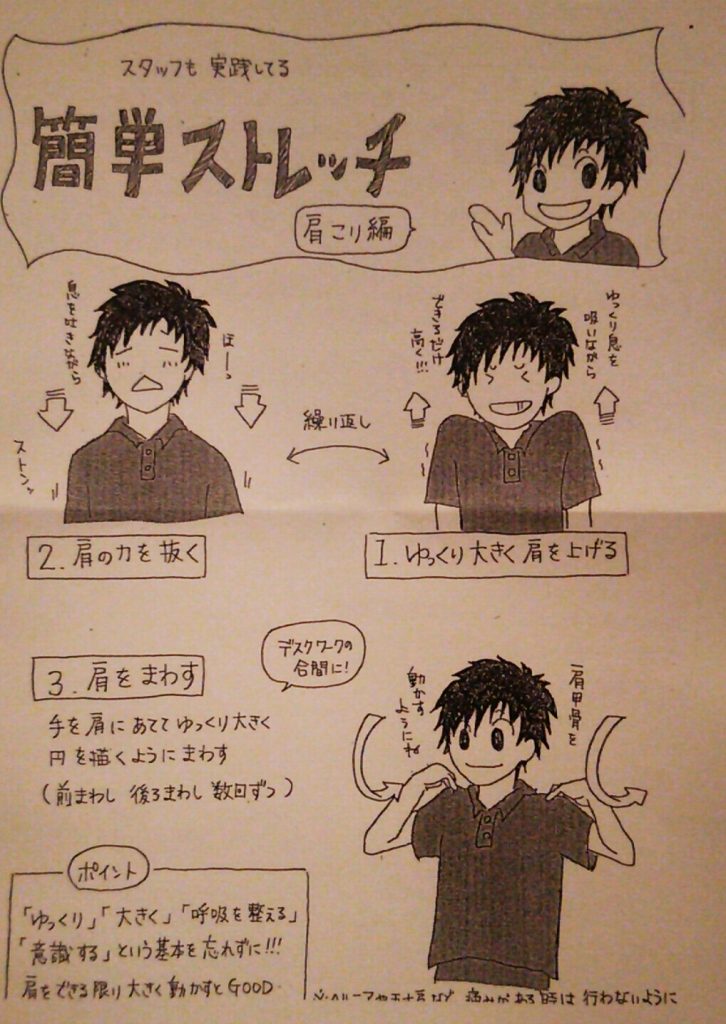 スタッフも 実践してる
簡単ストレッチ
肩こり編
ゆっくり息を
吸いながら
できるだけ
高く!!!
1. ゆっくり大きく肩を上げる
繰り返し
ほーっ
息を吐きながら
ストンッ
2. 肩の力を抜く
3. 肩をまわす
手を肩にあててゆっくり大きく
円を描くようにまわす
(前まわし 後ろまわし 数回ずつ)
デスクワークの
合間に!
肩甲骨を
動かす
ようにね
ポイント
「ゆっくり」「大きく」「呼吸を整える」
「意識する」という基本を忘れずに!!!
肩をできる限り大きく動かすとGOOD
痛みがある時は行わないように